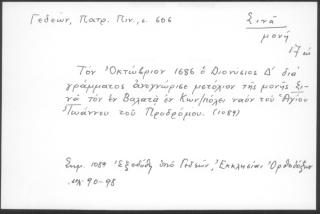 Γεδεών, Πατρ. Πιν., σ. 606
Σινᾶ
μονή
17 αἰ
Τὸν Ὀκτώβριον 1686 ὁ Διονύσιος Δ' διὰ
γράμματος ἀνεγνώρισε μετόχιον τῆς μονῆς Σι-
νᾶ τὸν ἐν Βαλατᾷ ἐν Κων/πόλει ναὸν τοῦ Ἁγίου
Ἰωάννου τοῦ Προδρόμου. (1089)
Σημ. 1089 Ἐξεδόθη ὑπὸ Γεδεών, Ἐκκλησίαι Ὀρθοδόξων
90-98